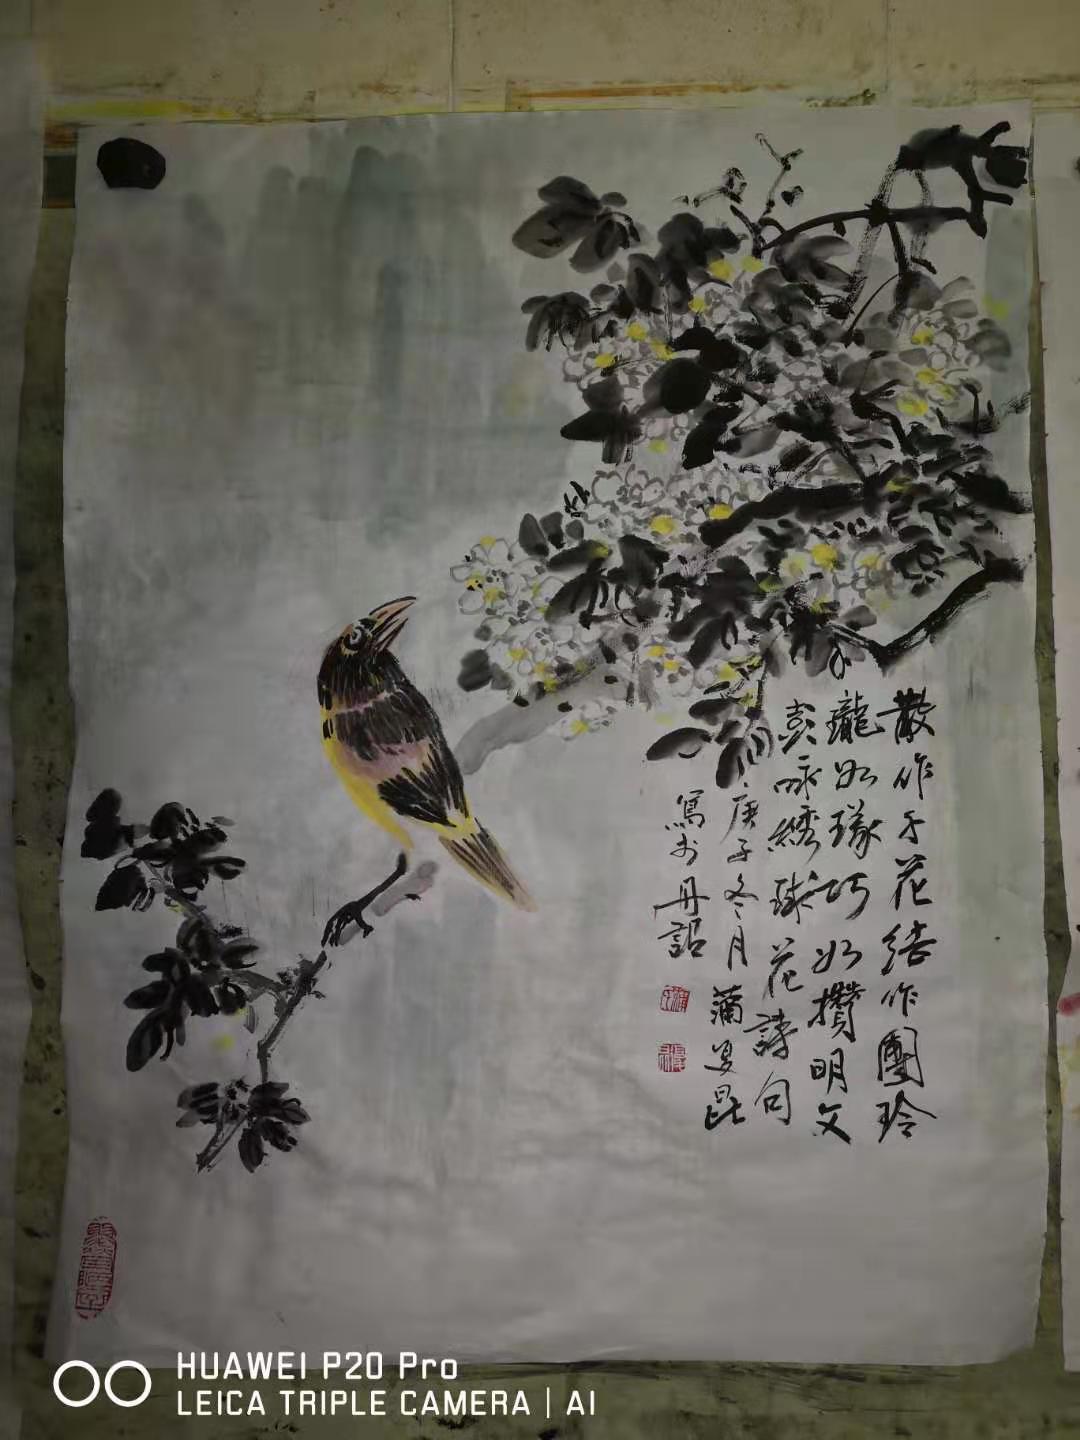 散作千花结作團玲
瓏如琢巧如攢明文
彭咏绣球花詩句
庚子冬月蒲昆
寫于丹詔
HUAWEI P20 Pro
LEICA TRIPLE CAMERA | AI